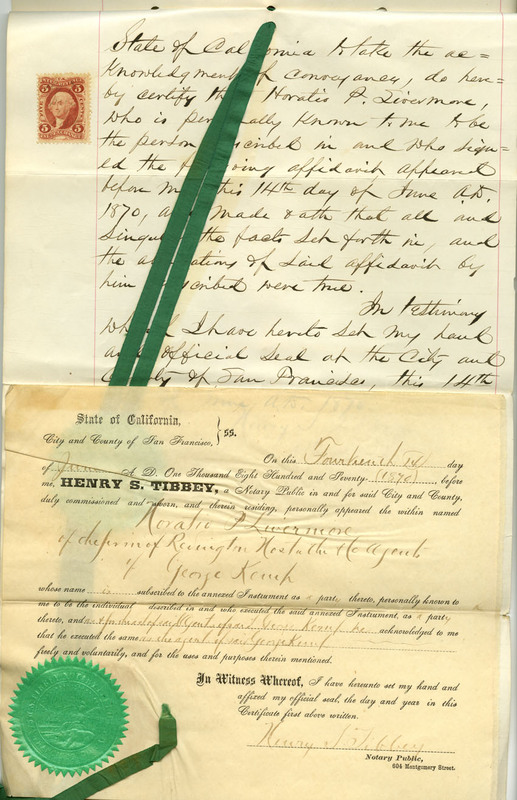 5 5
5 5
State of California to take the ac=
knowledgment of conveyancy, do here=
by certify that Horatio P. Livermore,
who is personally known to me to be
the person described in and who sign=
ed the foregoing affidavit appeared
before me this 14th day of June A.D.
1870, and made oath that all and
singular the facts set forth in, and
the allegations of said affidavit by
him subscribed were true.
In testimony
which I have hereto set my hand
and Official Seal at the City and
County of San Francisco, this 14th
State of California,
City and County of San Francisco, } ss.
On this Fourteenth 14 day
of June A. D. One Thousand Eight Hundred and Seventy (1870) before
me, HENRY S. TIBBEY, a Notary Public in and for said City and County,
duly commissioned and sworn, and therein residing, personally appeared the within named
Horatio P Livermore
of the firm of Remington Hostetter & Co Agents
of
George Kemp
whose name is subscribed to the annexed Instrument as a party thereto, personally known to
me to be the individual described in and who executed the said annexed Instrument, as a party
thereto, and as Agent of said George Kemp he acknowledged to me
that he executed the same as the agent of said George Kemp
freely and voluntarily, and for the uses and purposes therein mentioned.
In Witness Whereof, I have hereunto set my hand and
affixed my official seal, the day and year in this
Certificate first above written.
Henry S. Tibbey
Notary Public,
604 Montgomery Street.